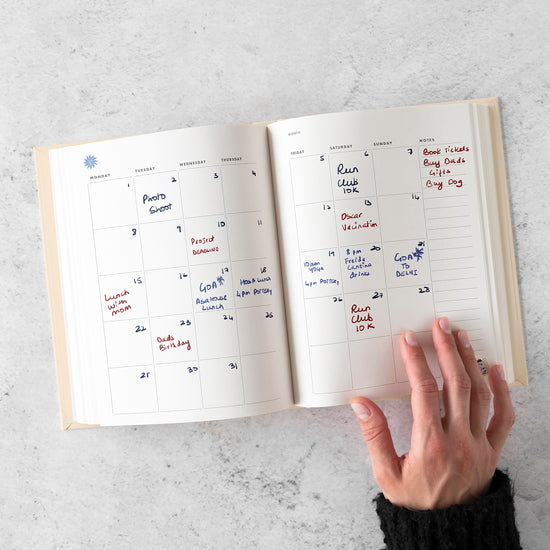 MONDAY TUESDAY WEDNESDAY THURSDAY
1 2 3 4
Photo
Shoot
8 9 10 11
Project
DEADLINE
15 16 17 18
Lunch
with
mom
GOA
Lunch
4pm POTTERY
22 23 24 25
Dads
Birthday
29 30 31
MONTH
FRIDAY SATURDAY SUNDAY NOTES
5 6 7
Run
Club
10K
Book Tickets
Buy Dads
Gifts
Buy Dog
12 13 14
Oscar
Vaccination
19 20 21
10am
4pm POTTERY
8 pm
drinks
GOA
TO
DELHI
26 27 28
Run
Club
10K